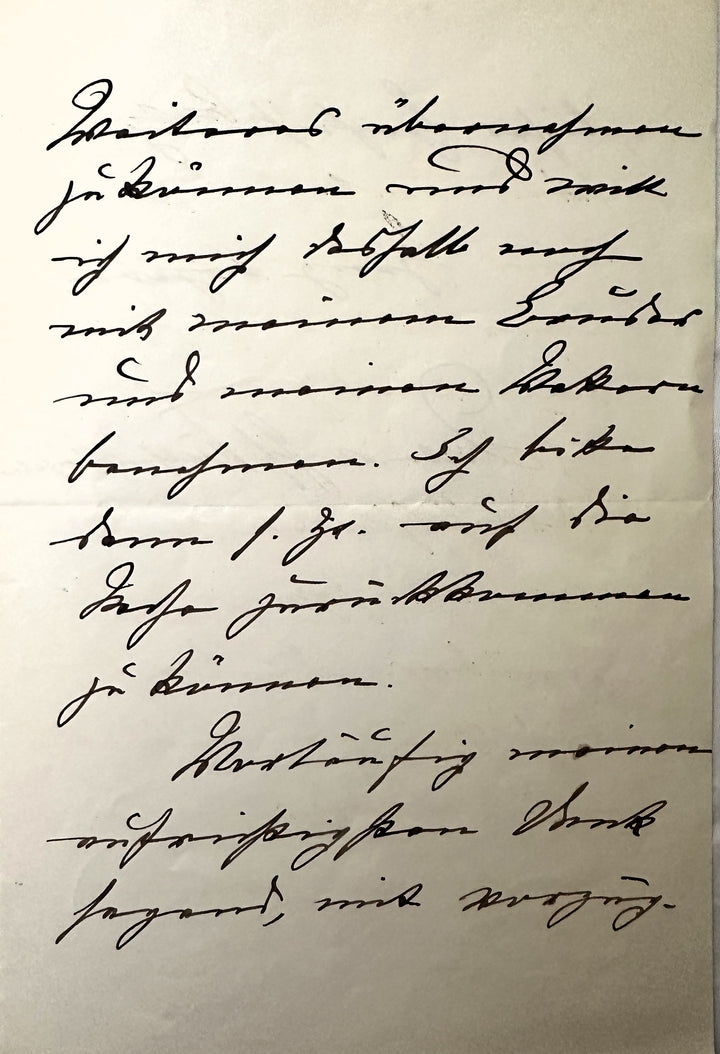 Weiteres übernehmen
zu können und will
ich mich deshalb noch
mit meinem Bruder
und meinen Vettern
benehmen. Ich bitte
dann s. Zt. auf die
Sache zurückkommen
zu können.
Vorläufig meinen
aufrichtigsten Dank
sagend, mit vorzüg-